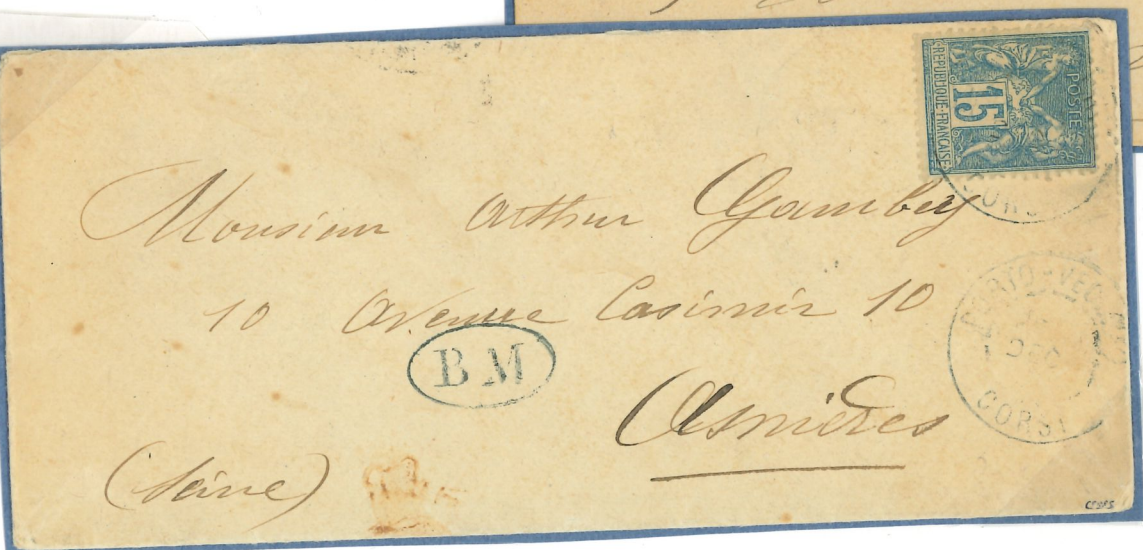 POSTE
15
REPUBLIQUE FRANÇAISE
CORS
Monsieur Arthur Gambey
10 Avenue Casimir 10
BM
Asnières
(Seine)
PORTO-VECC
DEC
CORSE